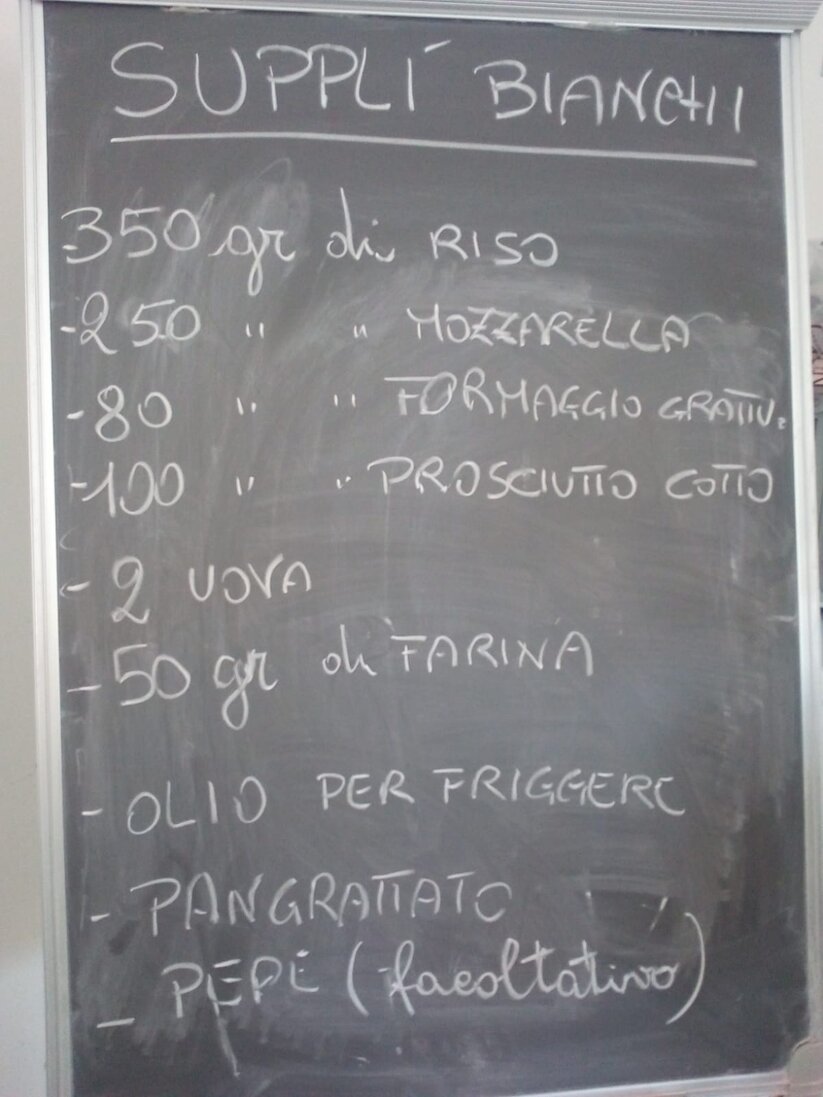 SUPPLÍ BIANCHI
-350 gr di RISO
-250 " " MOZZARELLA
-80 " " FORMAGGIO GRATTU.
-100 " " PROSCIUTTO COTTO
- 2 UOVA
- 50 gr di FARINA
- OLIO PER FRIGGERE
- PANGRATTATO
- PEPE (facoltativo)